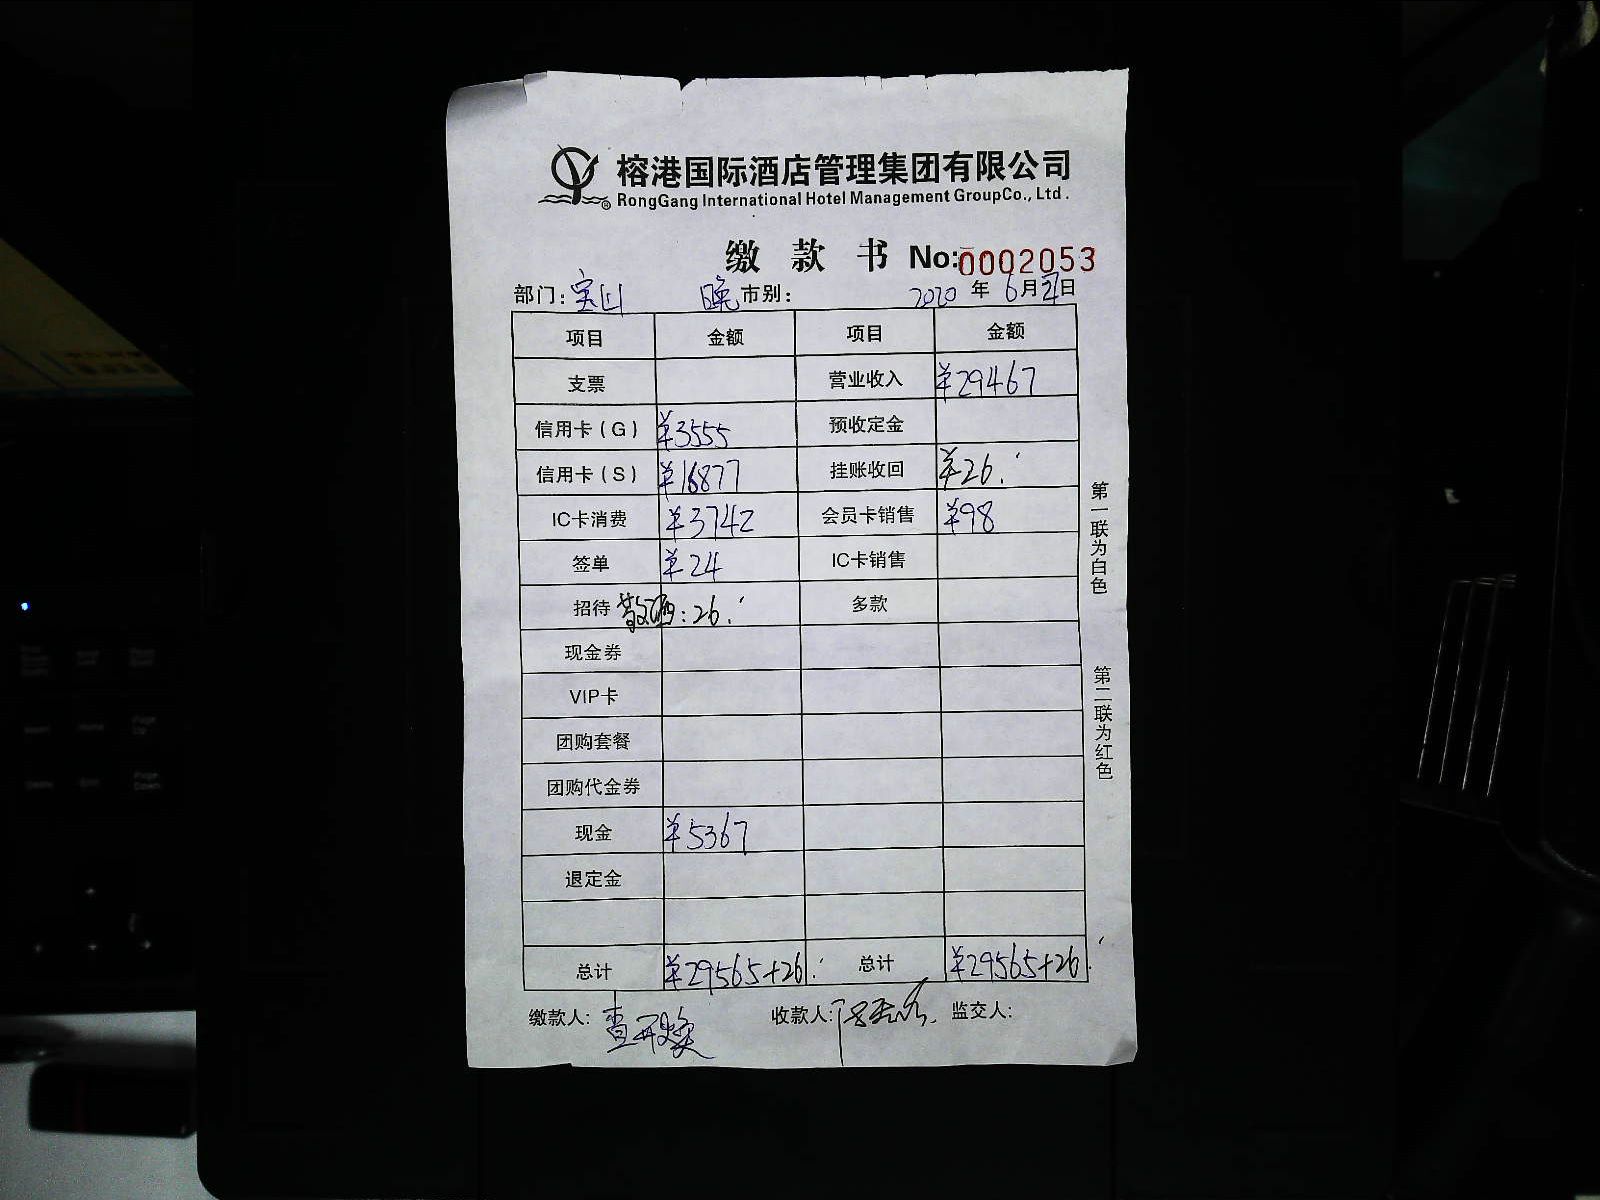 榕港国际酒店管理集团有限公司
RongGang International Hotel Management GroupCo., Ltd.
缴款书 No:0002053
部门: 宝山 晚市别: 2020年6月21日
项目 金额 项目 金额
支票 营业收入 ¥29467
信用卡(G) ¥3555 预收定金
信用卡(S) ¥16877 挂账收回 ¥26.
IC卡消费 ¥3742 会员卡销售 ¥98
签单 ¥24 IC卡销售
招待 散酒:26. 多款
现金券
VIP卡
团购套餐
团购代金券
现金 ¥5367
退定金
总计 ¥29565+26. 总计 ¥29565+26.
缴款人: 收款人: 监交人:
第一联为白色
第二联为红色